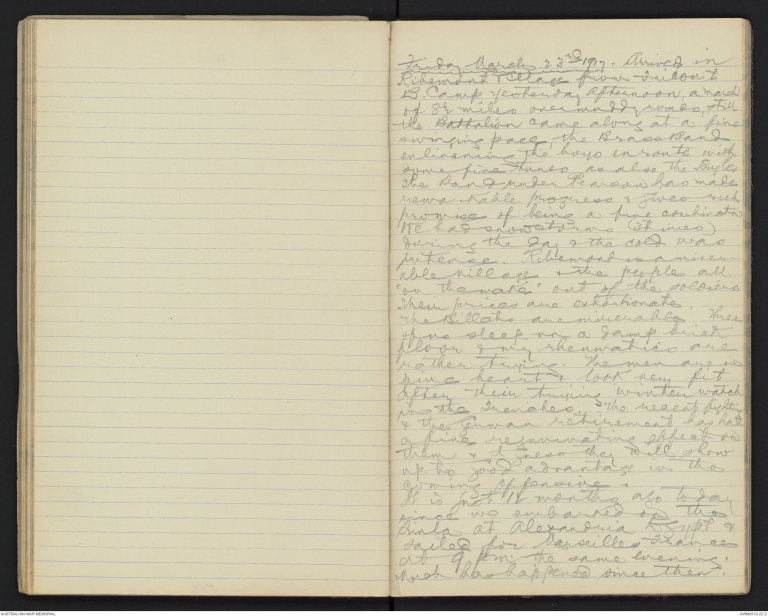 Friday March 23rd 1917. Arrived in
Ribemont Village from Fricourt
B. Camp yesterday afternoon, a march
of 8½ miles over muddy roads, still
the Battalion came along at a fine
swinging pace, the Brass Band
enlivening the boys en route with
some fine tunes as also the Bugles
The Band under Pearson has made
remarkable progress & gives rich
promise of being a fine combination
We had snowstorms (3 times)
during the day & the cold was
intense. Ribemont is a miser-
able village & the people all
"on the make" out of the soldiers.
Their prices are extortionate.
The Billets are miserable. Three
of us sleep on a damp brick
floor & my rheumatics are
rather trying. The men are in
fine heart & look very fit
after their trying winter watch
in the Trenches. The recent fighting
& the German retirement has had
a fine rejuvinating effect on
them & I guess they will show
up to good advantage in the
coming offensive.
It is just 12 months ago today
since we embarked on the
at Alexandria Egypt &
sailed for Marseilles France
at 9 p.m. the same evening.
Much has happened since then.
AUSTRALIAN WAR MEMORIAL